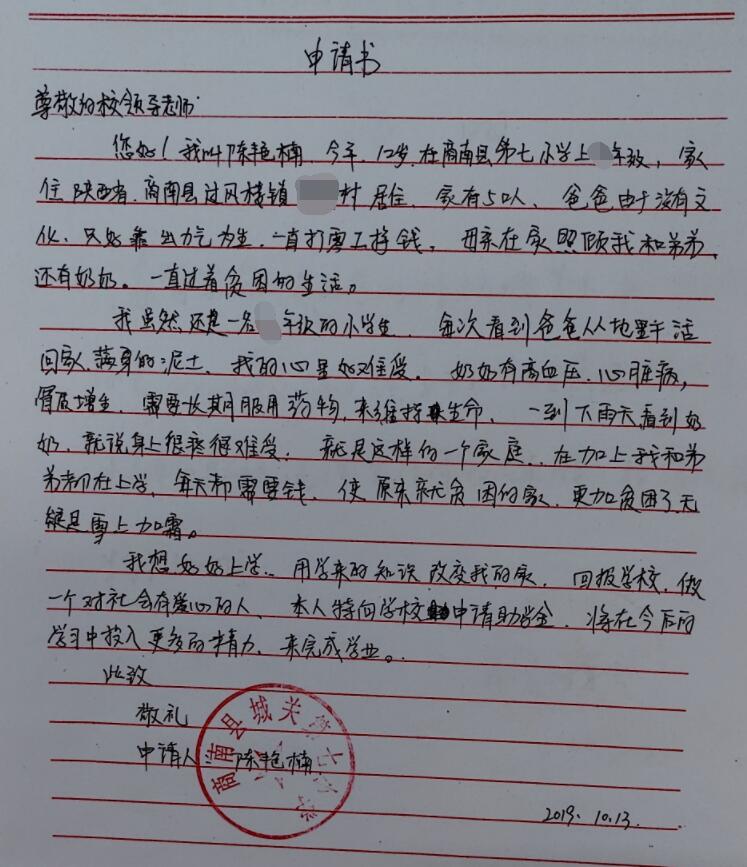 申请书
尊敬的校领导老师:
您好!我叫陈艳楠,今年,12岁,在商南县第七小学上年级,家
住陕西省,商南县过风楼镇村居住,家有5口人,爸爸由于没有文
化,只好靠出力气为生,一直打零工挣钱,母亲在家照顾我和弟弟,
还有奶奶。一直过着贫困的生活。
我虽然还是一名年级的小学生,每次看到爸爸从地里干活
回家,满身的泥土,我的心里好难受。奶奶有高血压,心脏病,
骨质增生,需要长期服用药物,来维持生命,一到下雨天看到奶
奶,就说身上很疼很难受,就是这样的一个家庭,在加上我和弟
弟都在上学,每天都需要钱,使原来就贫困的家,更加贫困了,无
疑是雪上加霜。
我想好好上学,用学来的知识改变我的家,回报学校,做
一个对社会有爱心的人,本人特向学校申请助学金,将在今后的
学习中投入更多的精力,来完成学业。
此致
敬礼
申请人 陈艳楠
商南县城关第七小学
2019.10.13